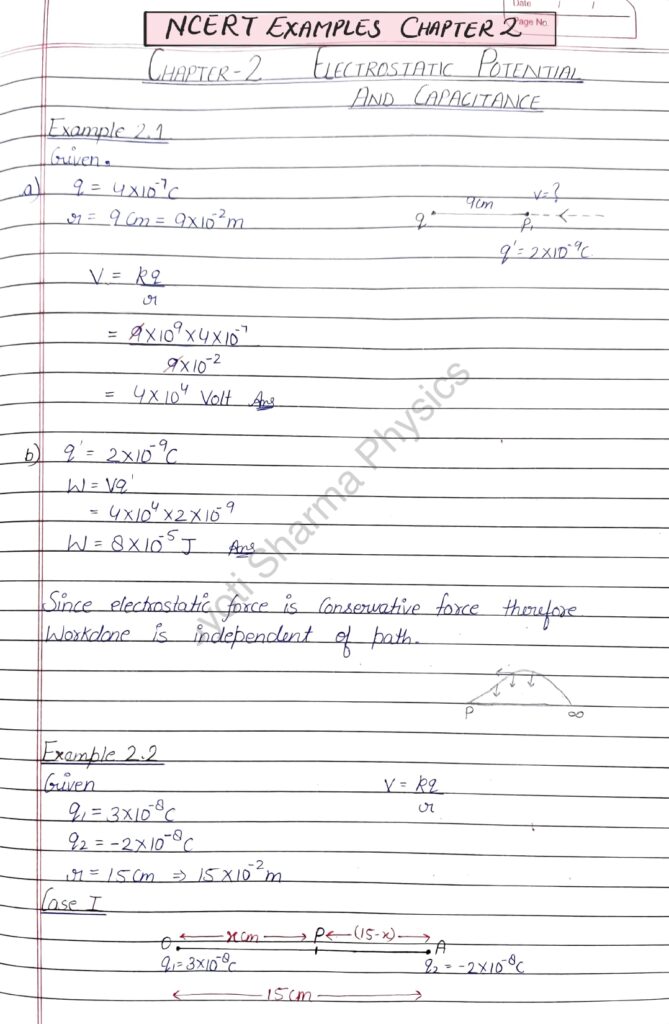 Date / /
Page No.
NCERT EXAMPLES CHAPTER 2
CHAPTER-2 ELECTROSTATIC POTENTIAL
AND CAPACITANCE
Example 2.1
Given.
a) q = 4×10⁻⁷C
r = 9cm = 9×10⁻²m
q 9cm P₁ V=?
q' = 2×10⁻⁹C
V = kq
r
= 9×10⁹×4×10⁻⁷
9×10⁻²
= 4×10⁴ Volt Ans
b) q' = 2×10⁻⁹C
W = Vq'
= 4×10⁴×2×10⁻⁹
W = 8×10⁻⁵J Ans
Since electrostatic force is Conservative force therefore
Workdone is independent of path.
P ∞
Example 2.2
Given
V = kq
r
q₁ = 3×10⁻⁸C
q₂ = -2×10⁻⁸C
r = 15cm ⇒ 15×10⁻²m
Case I
O xcm P (15-x) A
q₁=3×10⁻⁸C q₂ = -2×10⁻⁸C
15cm
Jyoti Sharma Physics